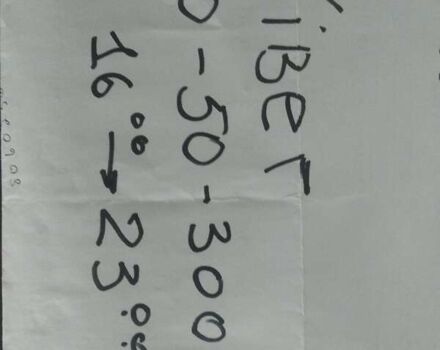 іВеГ
0-50-300
16⁰⁰ → 23⁰⁰